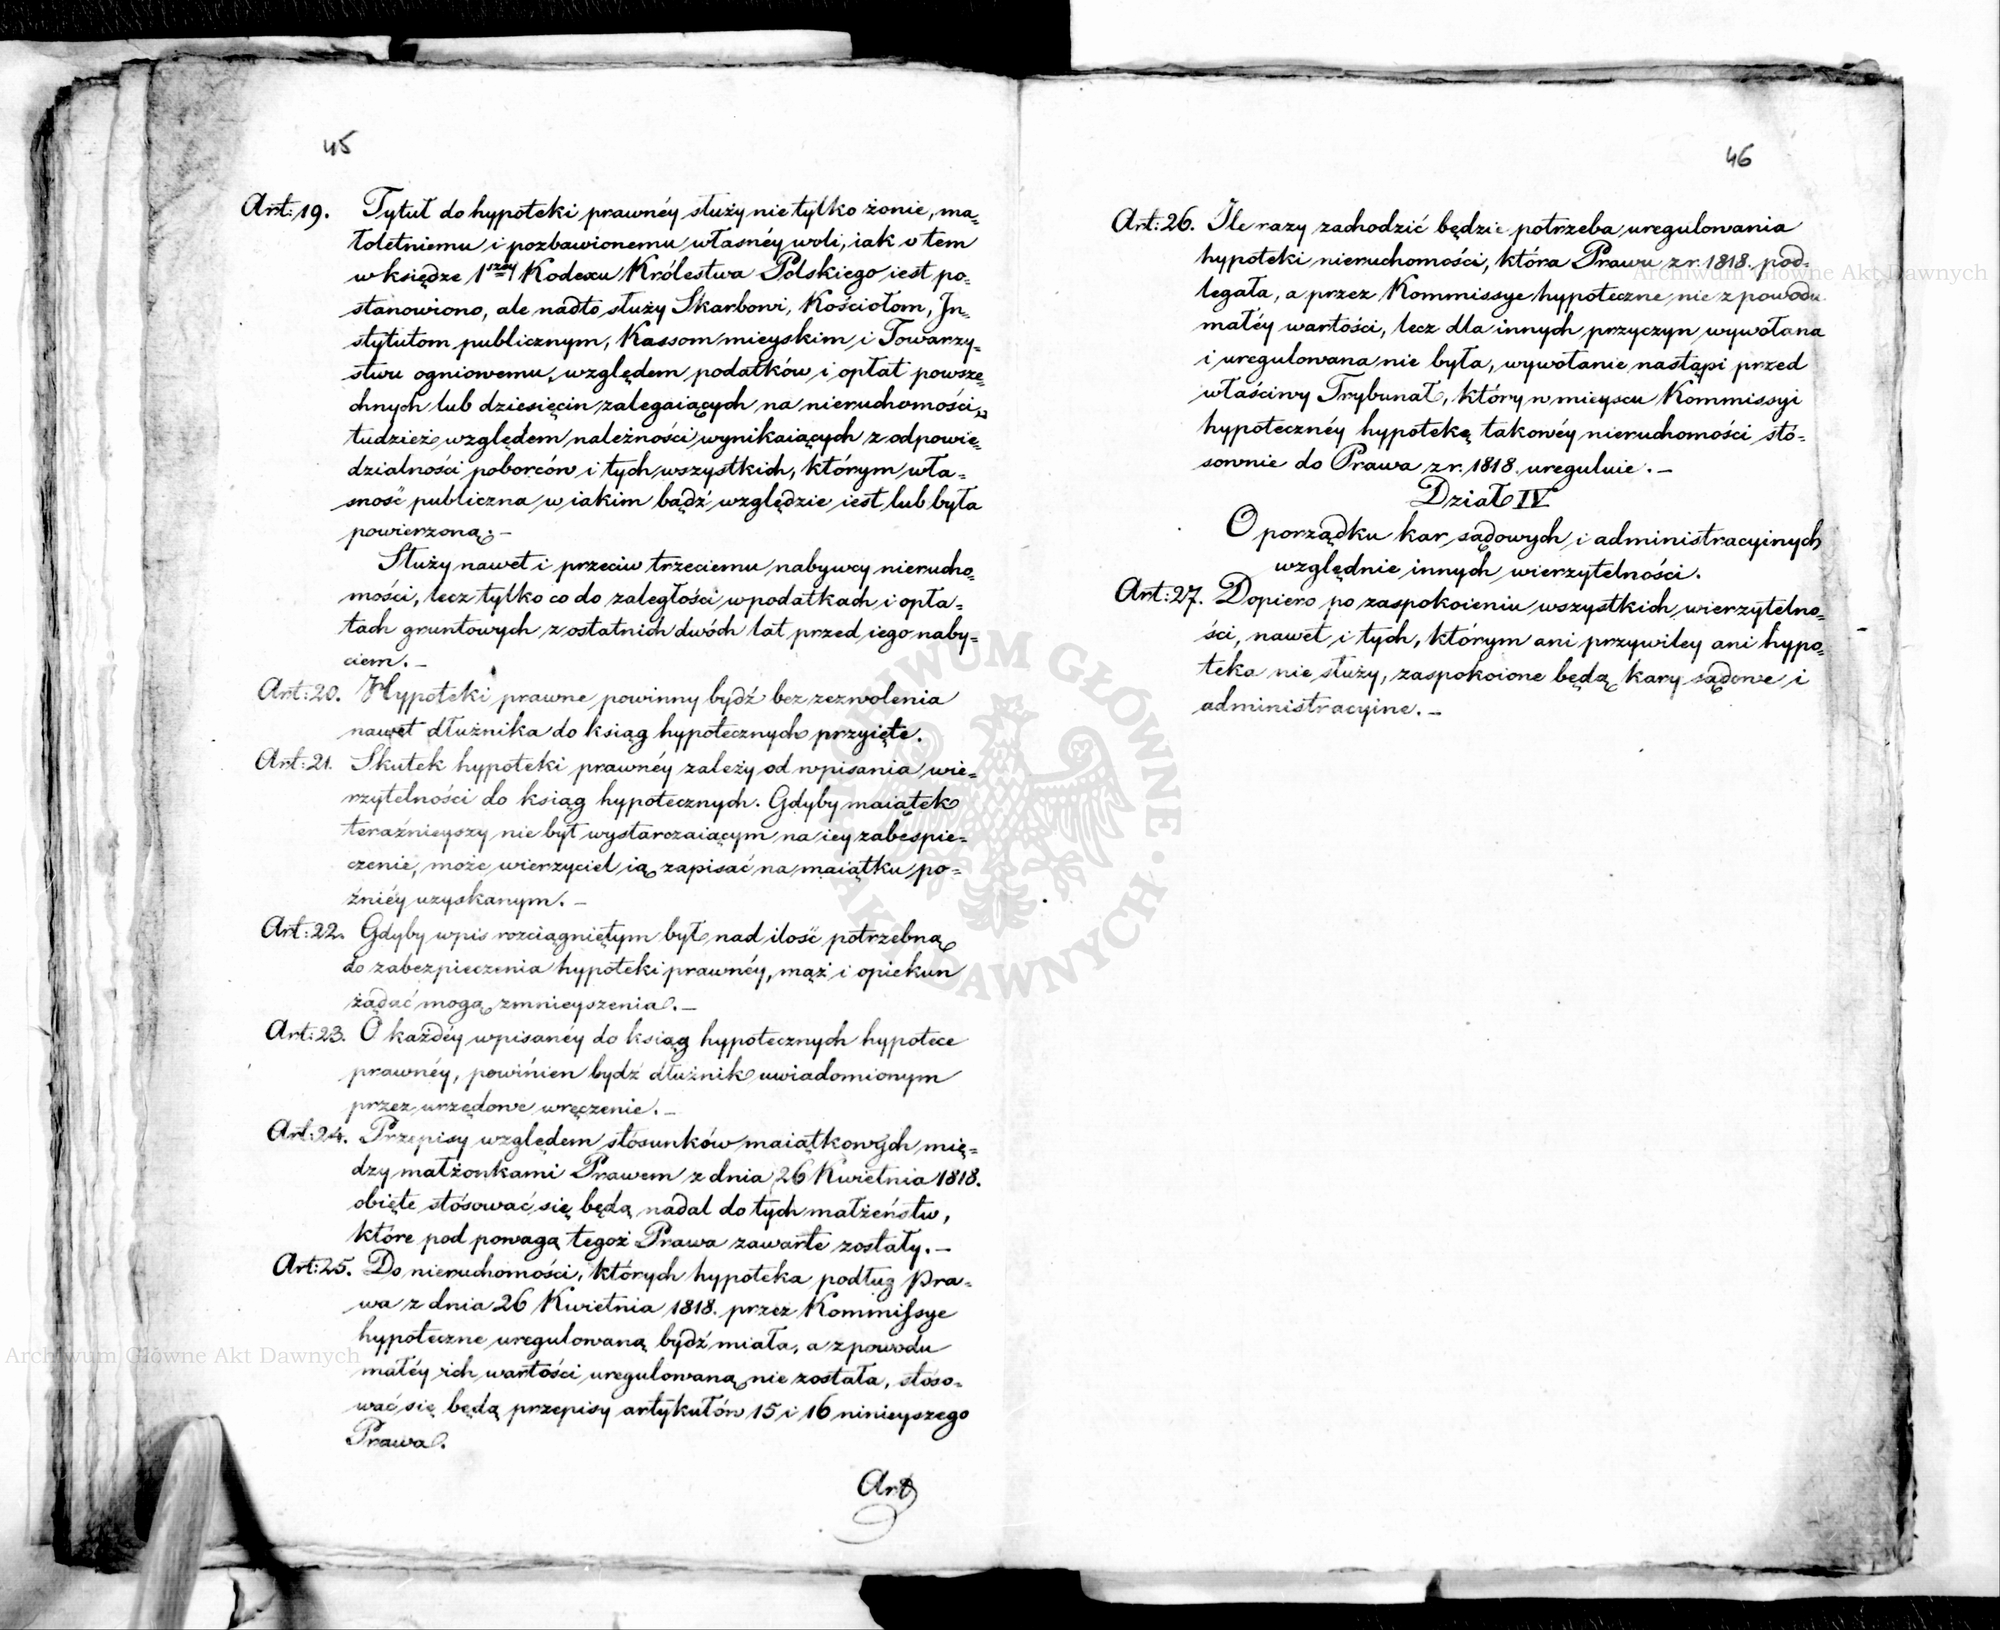 45
Art: 19. Tytuł do hypoteki prawnéy służy nie tylko żonie, ma=
łoletniemu i pozbawionemu własnéy woli, iak o tem
w księdze 1széy Kodexu Królestwa Polskiego iest po=
stanowiono, ale nadto służy Skarbowi, Kościołom, In=
stytutom publicznym, Kassom mieyskim i Towarzy=
stwu ogniowemu, względem podatków i opłat powsze=
chnych lub dziesięcin zalegaiących na nieruchomości,
tudzież względem należności wynikaiących z odpowie=
dzialności poborców i tych wszystkich, którym wła=
sność publiczna w iakim bądź względzie iest lub była
powierzoną; –
Służy nawet i przeciw trzeciemu nabywcy nierucho=
mości, lecz tylko co do zaległości w podatkach i opła=
tach gruntowych z ostatnich dwóch lat przed iego naby=
ciem. –
Art: 20. Hypoteki prawne powinny bydź bez zezwolenia
nawet dłużnika do ksiąg hypotecznych przyięte.
Art: 21. Skutek hypoteki prawnéy zależy od wpisania wie=
rzytelności do ksiąg hypotecznych. Gdyby maiątek
teraźnieyszy nie był wystarczaiącym na iey zabespie=
czenie, może wierzyciel ią zapisać na maiątku po=
źniéy uzyskanym. –
Art: 22. Gdyby wpis rozciągniętym był nad ilość potrzebną
do zabezpieczenia hypoteki prawnéy, mąż i opiekun
żądać mogą zmnieyszenia. –
Art: 23. O każdéy wpisanéy do ksiąg hypotecznych hypotece
prawnéy, powinien bydź dłużnik uwiadomionym
przez urzędowe wręczenie. –
Art: 24. Przepisy względem stósunków maiątkowych mię=
dzy małżonkami Prawem z dnia 26 Kwietnia 1818.
obięte stósować się będą nadal do tych małżeństw,
które pod powagą tegoż Prawa zawarte zostały. –
Art: 25. Do nieruchomości, których hypoteka podług Pra=
wa z dnia 26 Kwietnia 1818. przez Kommissye
hypoteczne uregulowaną bydź miała, a z powodu
małéy ich wartości uregulowaną nie została, stóso=
wać się będą przepisy artykułów 15 i 16 ninieyszego
Prawa.
Art
46
Art: 26. Ile razy zachodzić będzie potrzeba uregulowania
hypoteki nieruchomości, która Prawu z r. 1818. pod=
legała, a przez Kommissye hypoteczne nie z powodu
małéy wartości, lecz dla innych przyczyn wywołana
i uregulowana nie była, wywołanie nastąpi przed
właściwy Trybunał, który w mieyscu Kommissyi
hypotecznéy hypotekę takowéy nieruchomości stó=
sownie do Prawa z r. 1818. ureguluie. –
Dział IV
O porządku kar sądowych i administracyinych
względnie innych wierzytelności.
Art: 27. Dopiero po zaspokoieniu wszystkich wierzytelno=
ści, nawet i tych, którym ani przywiley ani hypo=
teka nie służy, zaspokoione będą kary sądowe i
administracyine. –
Archiwum Główne Akt Dawnych
Archiwum Główne Akt Dawnych
ARCHIWUM GŁÓWNE AKT DAWNYCH